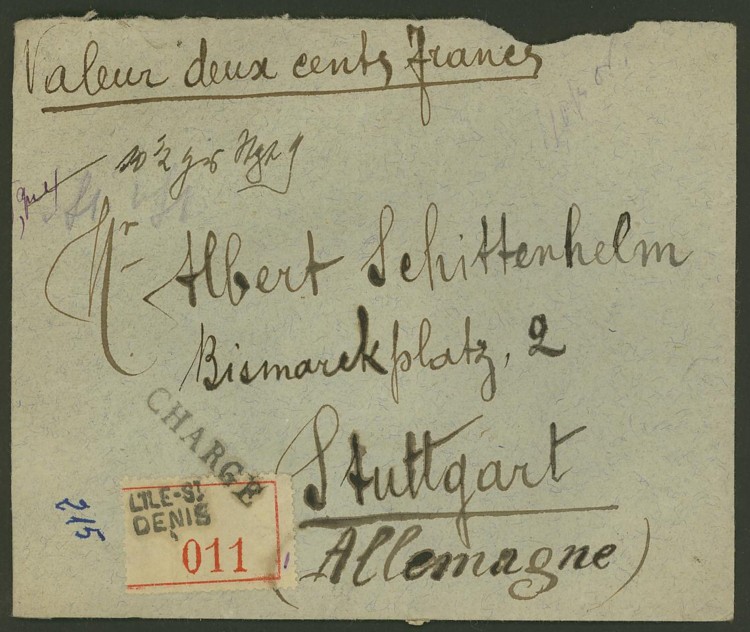 Valeur deux cents francs
Mr Albert Schittenhelm
Bismarckplatz, 2
CHARGE
Stuttgart
(Allemagne)
215
L'ILE-St
DENIS
011